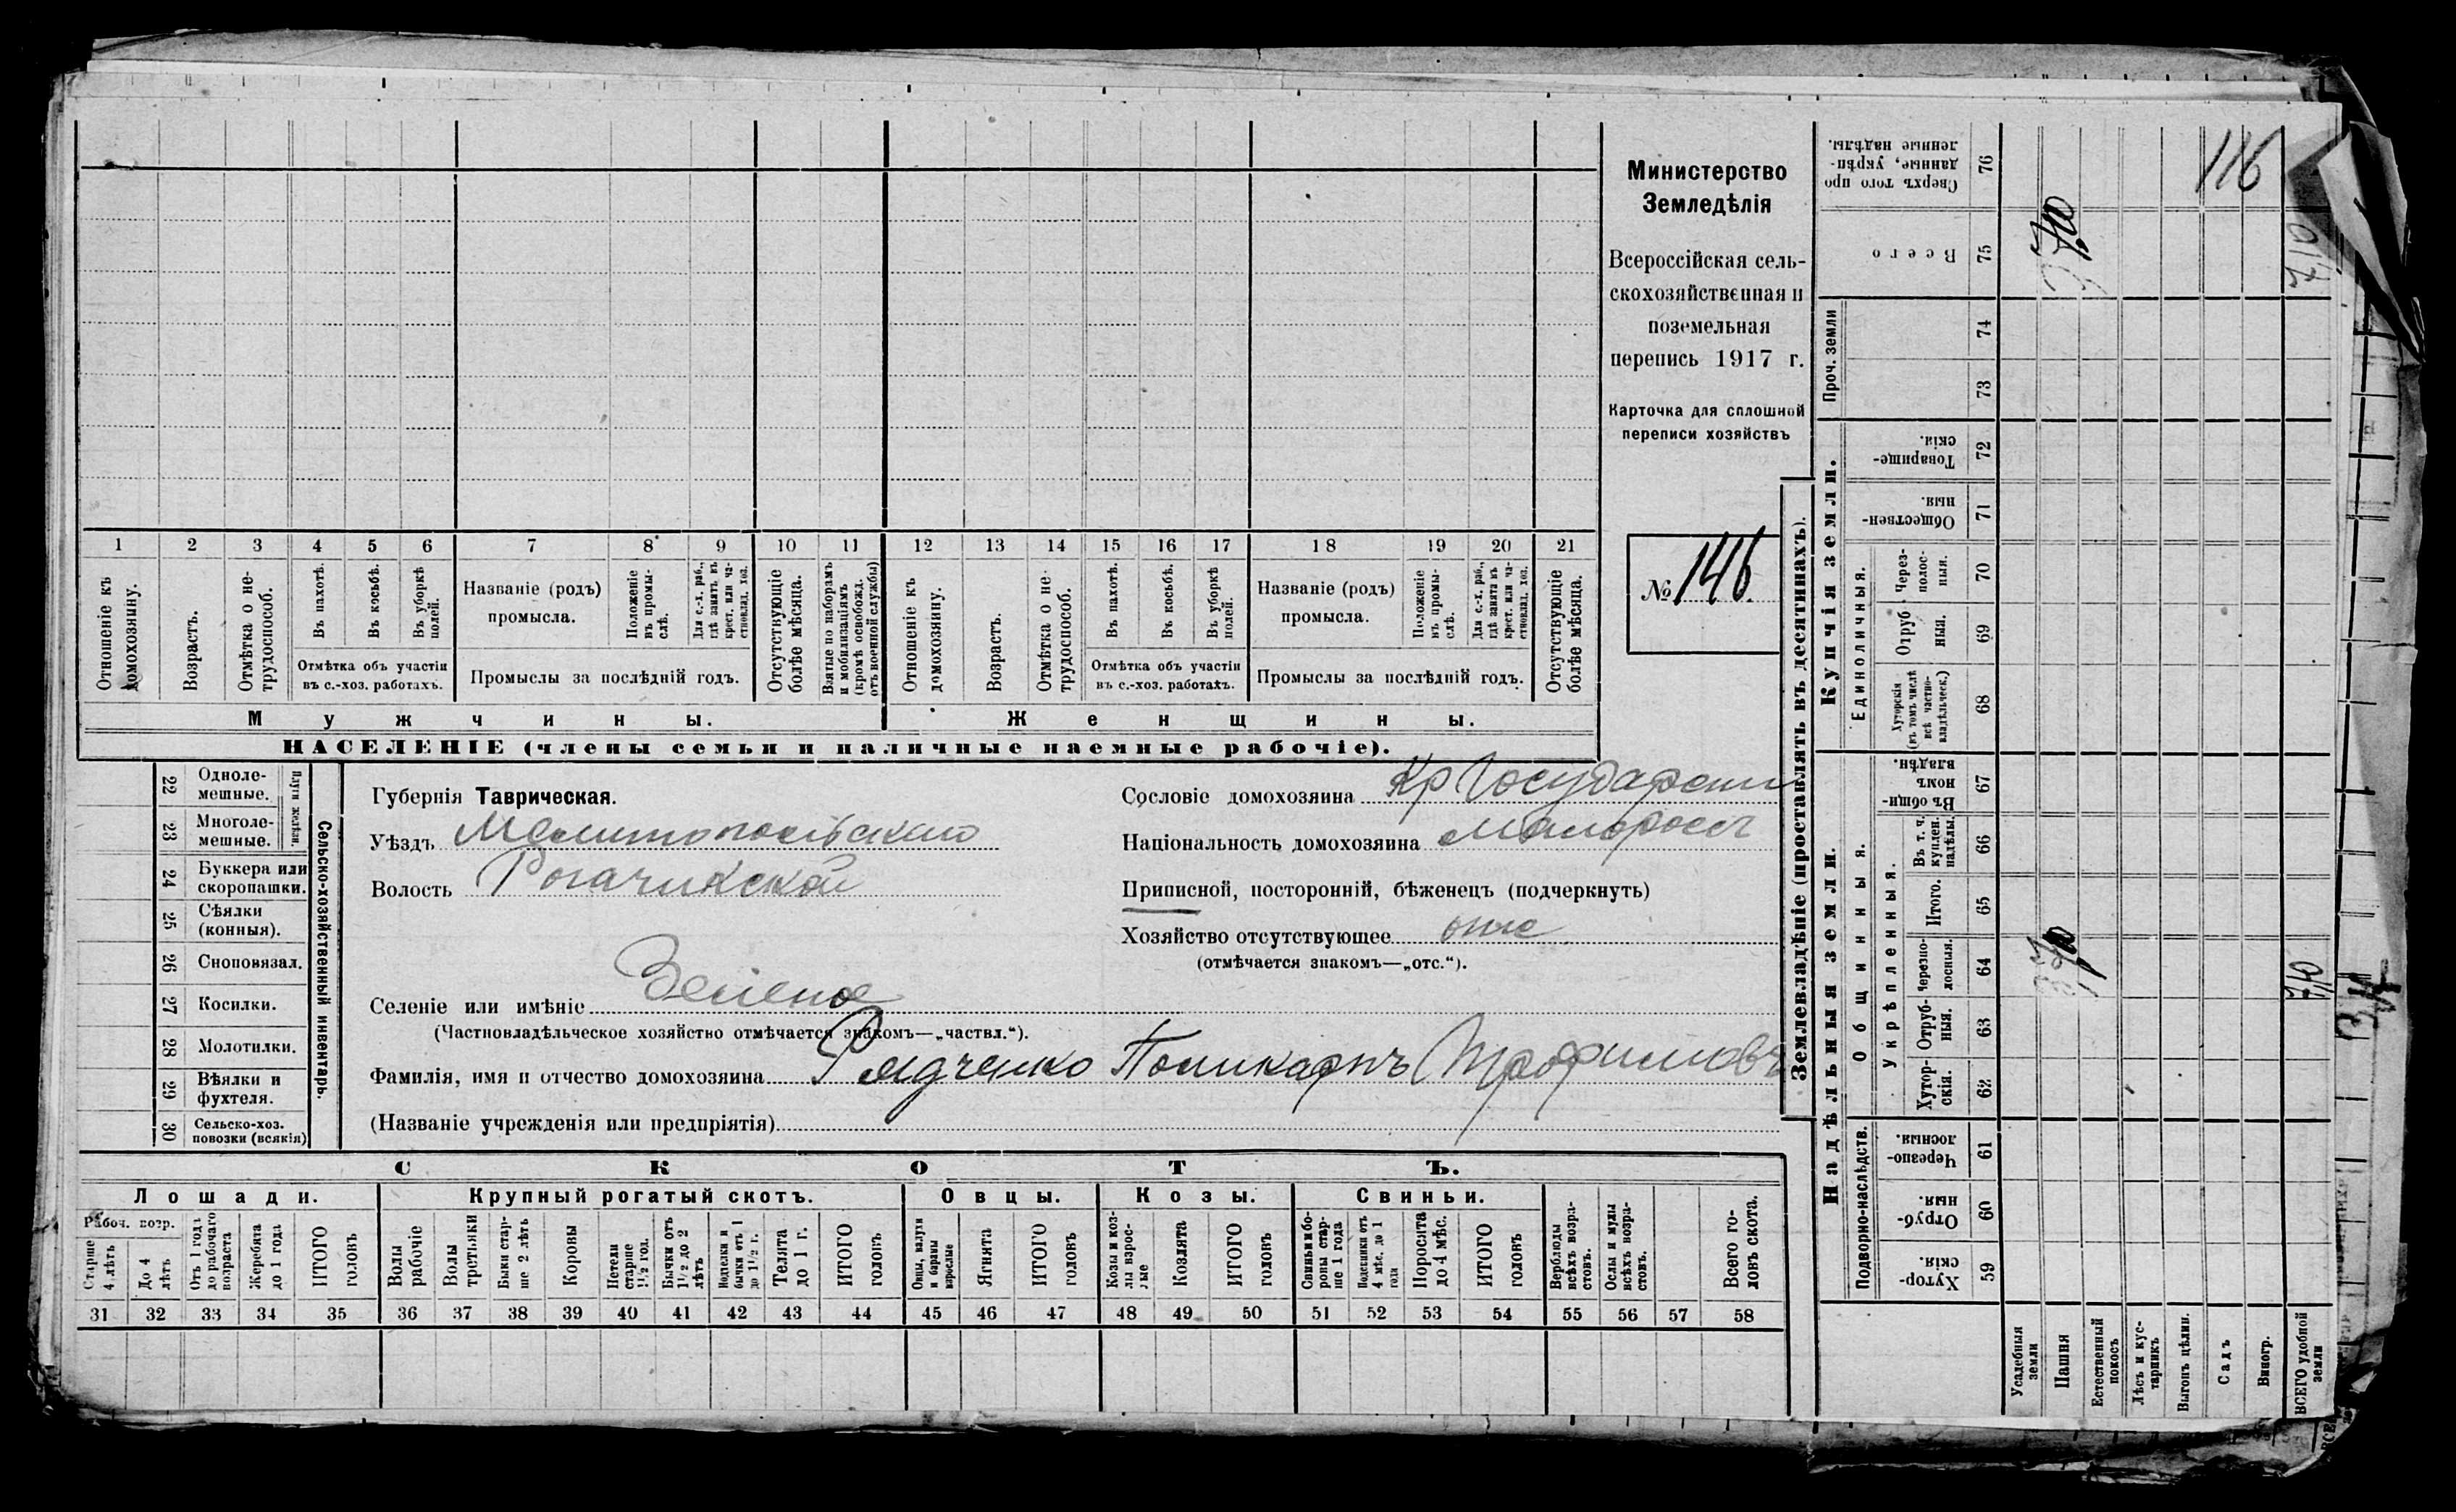 116
Министерство
Земледѣлія
Всероссійская сель-
скохозяйственная и
поземельная
перепись 1917 г.
Карточка для сплошной
переписи хозяйствъ
№ 146.
1 2 3 4 5 6 7 8 9 10 11 12 13 14 15 16 17 18 19 20 21
Отношеніе къ домохозяину.
Возрастъ.
Отмѣтка о не-трудоспособ.
Въ пахотѣ.
Въ косьбѣ.
Въ уборкѣ полей.
Отмѣтка объ участіи
въ с.-хоз. работахъ.
Названіе (родъ)
промысла.
Положеніе въ промы-слѣ.
Для с.-х. раб., гдѣ занятъ въ крест. или ча-стновлад. хоз.
Промыслы за послѣдній годъ.
Отсутствующіе болѣе мѣсяца.
Взятые по наборамъ и мобилизаціямъ (кромѣ освобожд. отъ военной службы)
Отношеніе къ домохозяину.
Возрастъ.
Отмѣтка о не-трудоспособ.
Въ пахотѣ.
Въ косьбѣ.
Въ уборкѣ полей.
Отмѣтка объ участіи
въ с.-хоз. работахъ.
Названіе (родъ)
промысла.
Положеніе въ промы-слѣ.
Для с.-х. раб., гдѣ занята въ крест. или ча-стновлад. хоз.
Промыслы за послѣдній годъ.
Отсутствующіе болѣе мѣсяца.
Мужчины. Женщины.
НАСЕЛЕНІЕ (члены семьи и наличные наемные рабочіе).
22 Одноле-мешные.
23 Многоле-мешные.
Плуги желѣзн.
24 Буккера или скоропашки.
25 Сѣялки (конныя).
26 Сноповязал.
27 Косилки.
28 Молотилки.
29 Вѣялки и фухтеля.
30 Сельско-хоз. повозки (всякія)
Сельско-хозяйственный инвентарь.
Губернія Таврическая.
Уѣздъ Мелитопольскаго
Волость Рогачикской
Сословіе домохозяина Кр Государств
Національность домохозяина малороссъ
Приписной, посторонній, бѣженецъ (подчеркнуть)
Хозяйство отсутствующее отс
(отмѣчается знакомъ—„отс.“).
Селеніе или имѣніе Зеленое
(Частновладѣльческое хозяйство отмѣчается знакомъ—„частвл.“).
Фамилія, имя и отчество домохозяина Рядченко Поликарпъ Трофимовъ
(Названіе учрежденія или предпріятія)
СКОТЪ.
Лошади. Крупный рогатый скотъ. Овцы. Козы. Свиньи.
Рабоч. возр.
Старше 4 лѣтъ
До 4 лѣтъ
Отъ 1 года до рабочаго возраста
Жеребята до 1 года
ИТОГО головъ
Волы рабочіе
Волы третьяки
Быки стар-ше 2 лѣтъ
Коровы
Нетели старше 1½ год.
Бычки отъ 1½ до 2 лѣтъ
Подтелки и бычки отъ 1 до 1½ г.
Телята до 1 г.
ИТОГО головъ
Овцы, валухи и бараны взрослые
Ягнята
ИТОГО головъ
Козы и коз-лы взрос-лые
Козлята
ИТОГО головъ
Свиньи и бо-ровы стар-ше 1 года
Подсвинки отъ 4 мѣс. до 1 года
Поросята до 4 мѣс.
ИТОГО головъ
Верблюды всѣхъ возра-стовъ.
Ослы и мулы всѣхъ возра-стовъ.
Всего го-ловъ скота.
31 32 33 34 35 36 37 38 39 40 41 42 43 44 45 46 47 48 49 50 51 52 53 54 55 56 57 58
Землевладѣніе (проставлять въ десятинахъ).
Сверхъ того про-данные, укрѣп-ленные надѣлы. 76
Всего 75
Проч. земли 74
73
Купчія земли.
Товарище-скія. 72
Обществен-ныя. 71
Единоличныя.
Через-полос-ныя. 70
Отруб-ныя. 69
Хуторскія (въ томъ числѣ всѣ частно-владѣльческ.) 68
Надѣльныя земли.
Общинныя.
Въ общи-номъ владѣн. 67
Укрѣпленныя.
Въ т. ч. куплен. надѣлы. 66
Итого. 65
Черезпо-лосныя. 64
Отруб-ныя. 63
Хутор-скія. 62
Подворно-наслѣдств.
Черезпо-лосныя. 61
Отруб-ныя. 60
Хутор-скія. 59
7,10
7,10
Усадебныя земли
Пашня
Естественный покосъ
Лѣсъ и кус-тарникъ
Выгонъ цѣлин.
Садъ
Виногр.
ВСЕГО удобной земли